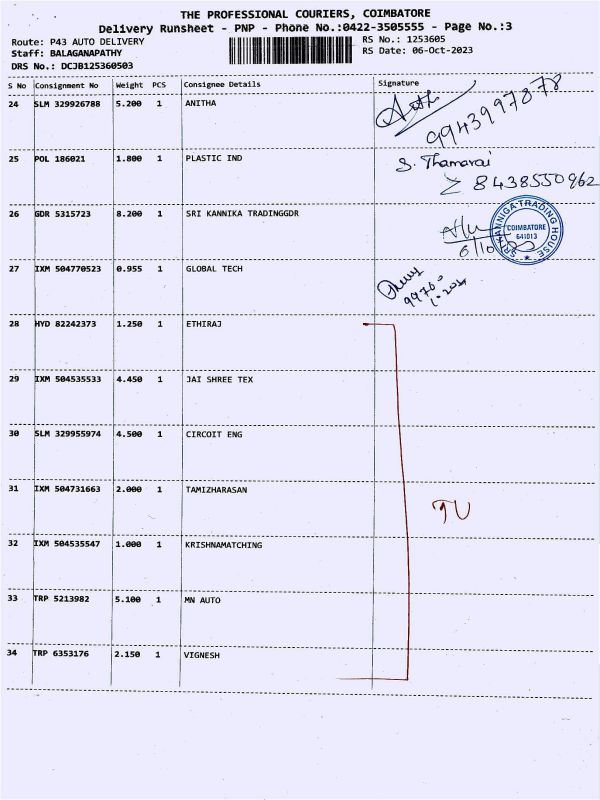 THE PROFESSIONAL COURIERS, COIMBATORE
Delivery Runsheet - PNP - Phone No.:0422-3505555 - Page No.:3
Route: P43 AUTO DELIVERY
RS No.: 1253605
Staff: BALAGANAPATHY
RS Date: 06-Oct-2023
DRS No.: DCJB125360503
S No Consignment No Weight PCS Consignee Details Signature
24 SLM 329926788 5.200 1 ANITHA
9943997878
25 POL 186021 1.800 1 PLASTIC IND S. Thamarai
8438550962
26 GDR 5315723 8.200 1 SRI KANNIKA TRADINGGDR
SRI KANNIGA TRADING HOUSE
COIMBATORE
641013
27 IXM 504770523 0.955 1 GLOBAL TECH
28 HYD 82242373 1.250 1 ETHIRAJ
29 IXM 504535533 4.450 1 JAI SHREE TEX
30 SLM 329955974 4.500 1 CIRCOIT ENG
31 IXM 504731663 2.000 1 TAMIZHARASAN
TU
32 IXM 504535547 1.000 1 KRISHNAMATCHING
33 TRP 5213982 5.100 1 MN AUTO
34 TRP 6353176 2.150 1 VIGNESH